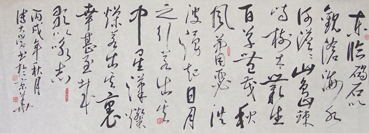 东临碣石以
观沧海水
何澹澹山岛竦
峙树木丛生
百草丰茂秋
风萧瑟洪
波涌起日月
之行若出其
中星汉灿
烂若出其里
幸甚至哉
歌以咏志
丙戌年秋月